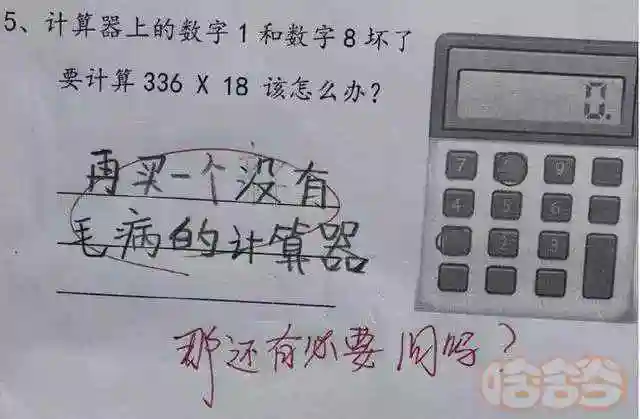 5、计算器上的数字1和数字8坏了
要计算336 X 18 该怎么办？
0.
再买一个没有
毛病的计算器
7 9
4 5 6
2 3
那还有必要问吗？
哈哈兮